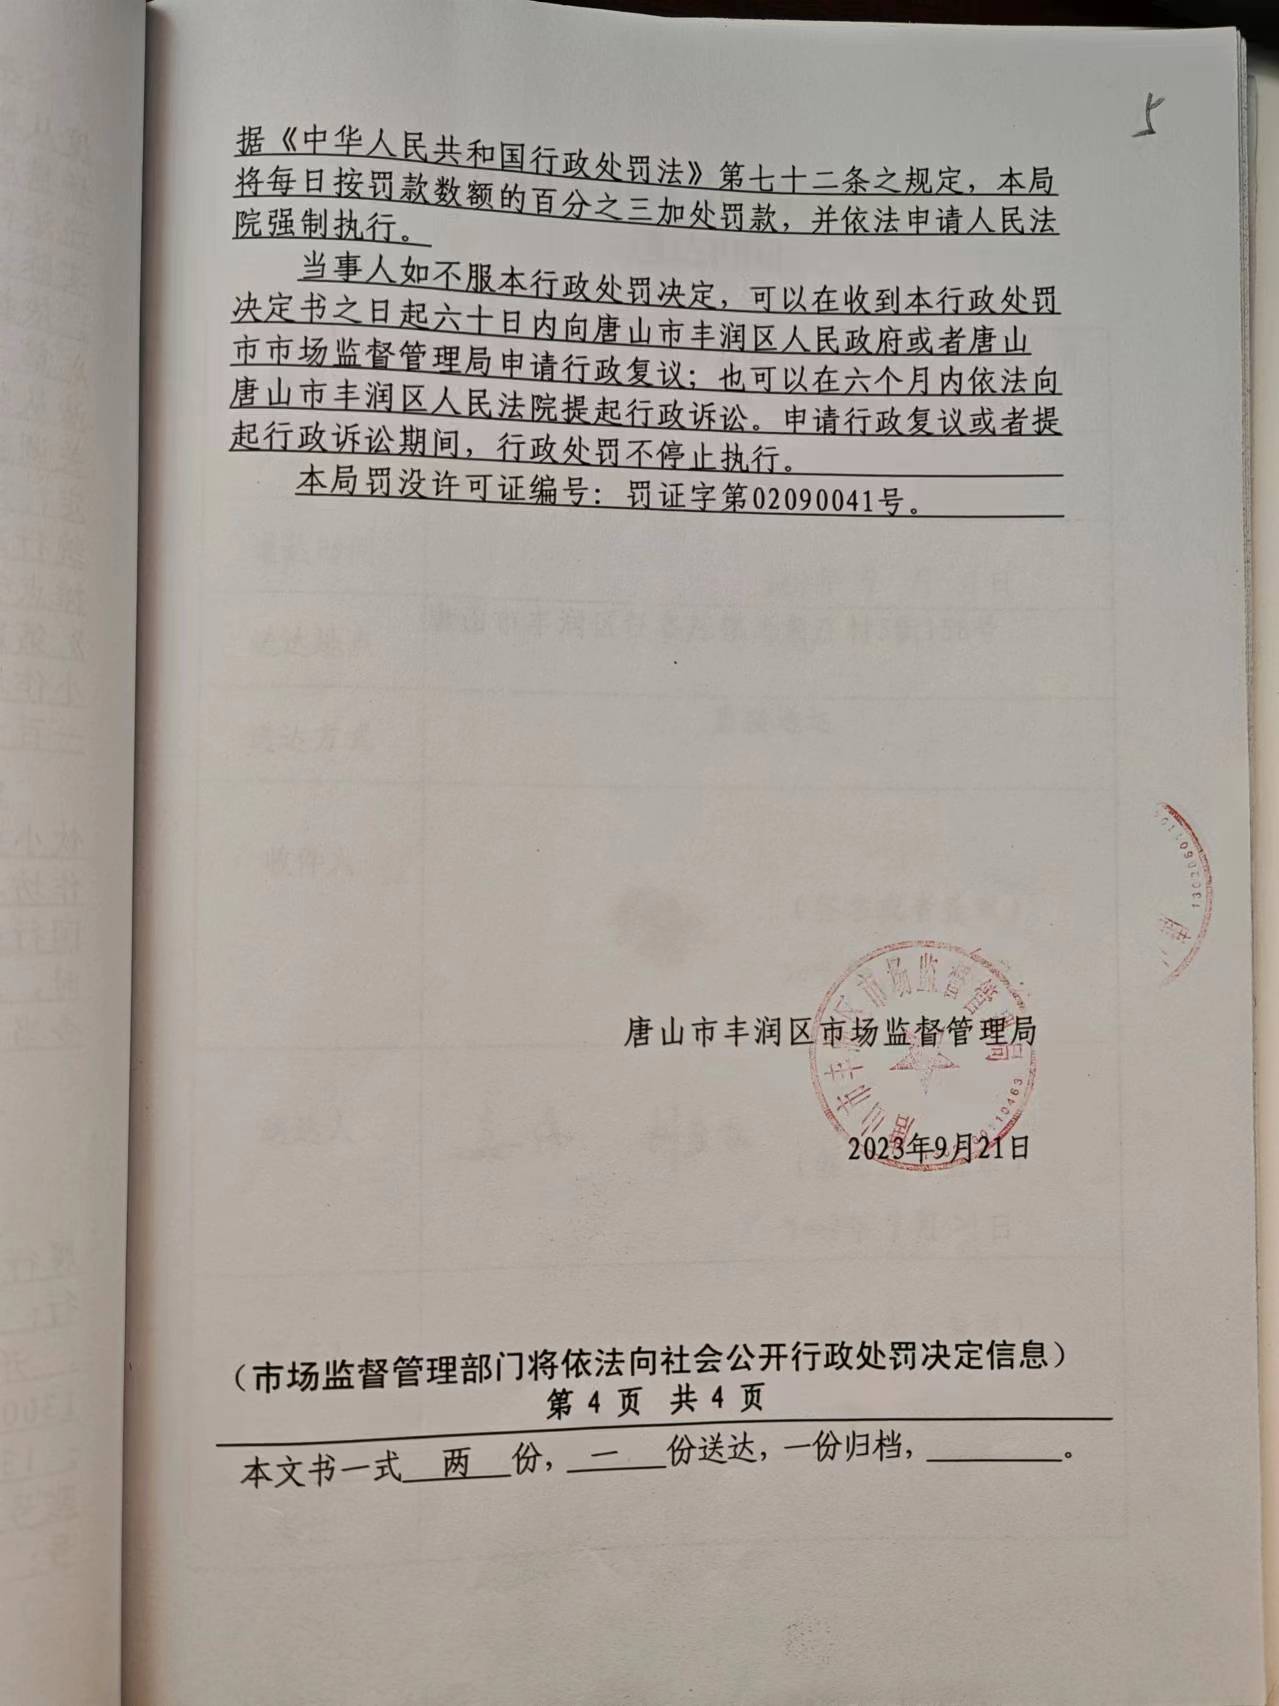 5
据《中华人民共和国行政处罚法》第七十二条之规定，本局
将每日按罚款数额的百分之三加处罚款，并依法申请人民法
院强制执行。
当事人如不服本行政处罚决定，可以在收到本行政处罚
决定书之日起六十日内向唐山市丰润区人民政府或者唐山
市市场监督管理局申请行政复议；也可以在六个月内依法向
唐山市丰润区人民法院提起行政诉讼。申请行政复议或者提
起行政诉讼期间，行政处罚不停止执行。
本局罚没许可证编号：罚证字第02090041号。
唐山市丰润区市场监督管理局
唐山市丰润区市场监督管理局
2023年9月21日
（市场监督管理部门将依法向社会公开行政处罚决定信息）
第 4 页 共 4 页
本文书一式 两 份， 一 份送达，一份归档，______。